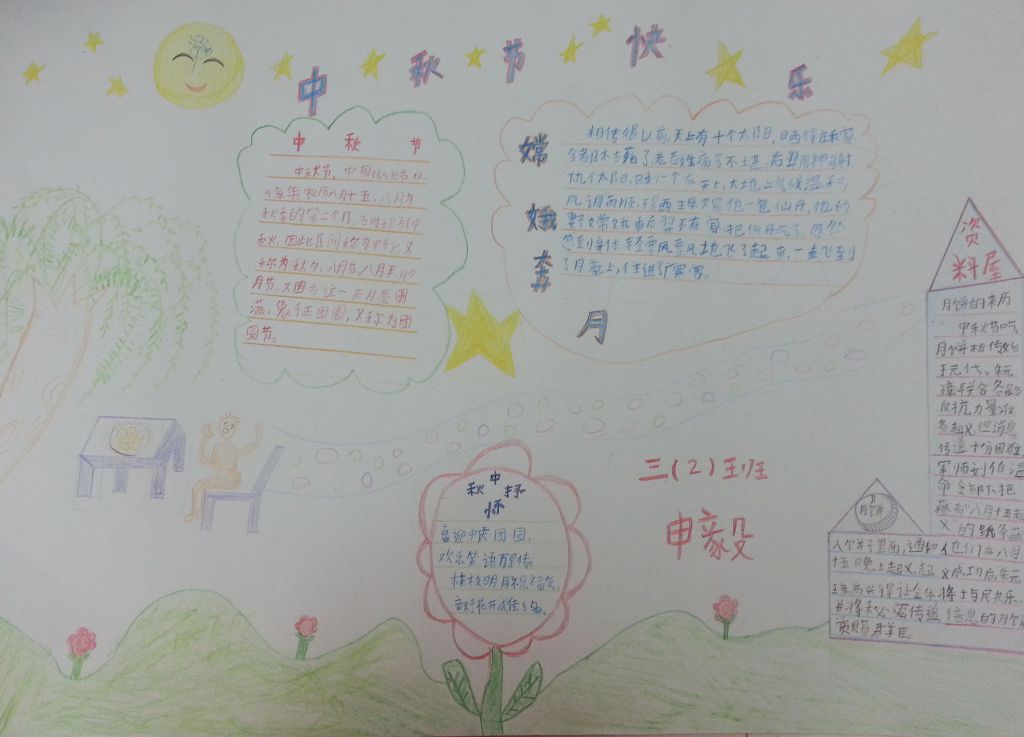 中秋节快乐
中秋节
中秋节,中国传统节日,
每年农历八月十五,八月为
秋季的第二个月,古时称为仲
秋,因此民间称为中秋,又
称为秋夕,八月节,八月半,月
月节,又因为这一天月亮圆
满,象征团圆,又称为团
圆节。
嫦娥奔月
相传很以前,天上有十个太阳,晒得庄稼
全都枯死了,老百姓痛苦不堪,后羿用神弓射
九个太阳,只剩一个在天上,大地上气候温和,
风调雨顺,
王母娘
他一包仙丹,他的
妻子嫦娥乘后羿不在家,把仙丹吃了,突然
感到身体轻飘飘地飞了起来,一直飞到
了月亮上,住进了广寒宫。
资
料屋
月饼的来历
中秋节吃
月饼相传始
于元代。朱元
璋联合各路
反抗力量准
备起义,但消息
传递十分困难
军师刘伯温
命令部下把
藏有“八月十五起
义”的纸条藏
月饼
入饼子里面,通知他们在八月
十五晚上起义,起义成功后,朱元
璋高兴得让全体将士与民共乐,
并将秋
传递信息的月饼
赏赐群臣。
中秋抒怀
喜迎中秋团圆,
欢乐笑语万里传。
明月
花开
三(2)班
申毅